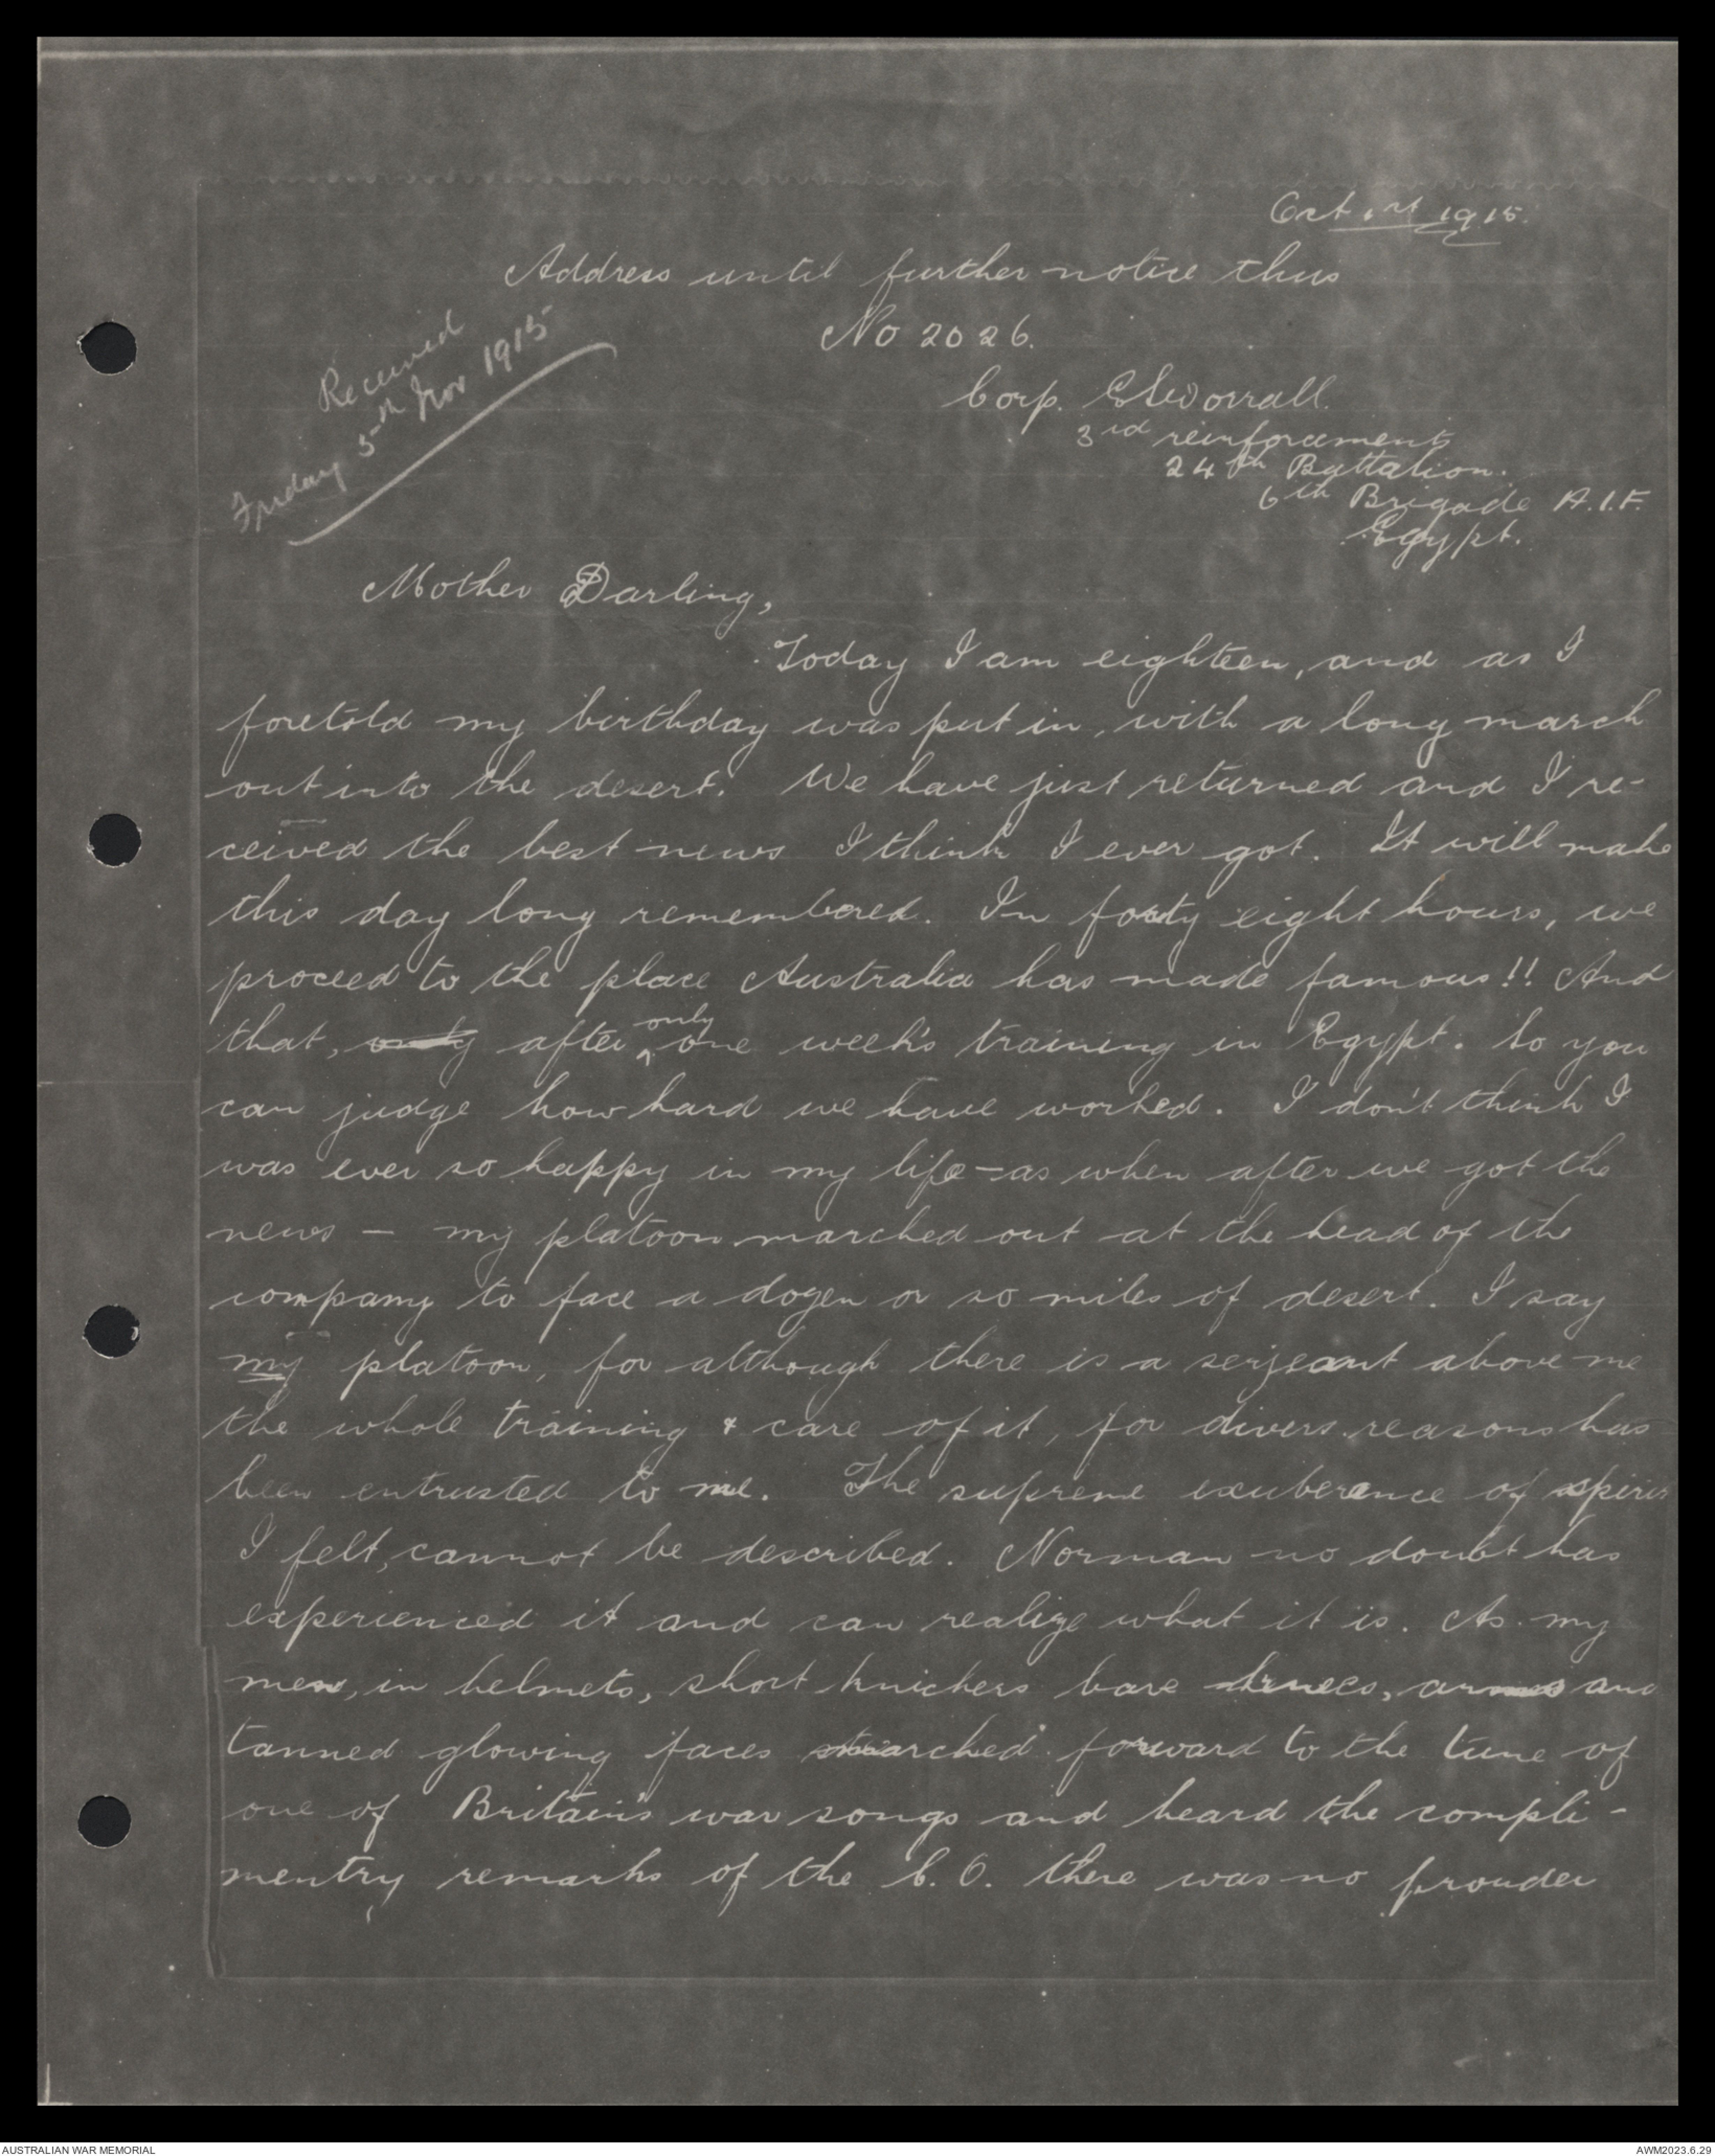 Oct 1st 1915.
Address until further notice thus
No 2026.
Received
Friday 5th Nov 1915
Corp. E Worrall.
3rd reinforcement
24th Battalion.
6th Brigade A.I.F.
Egypt.
Mother Darling,
Today I am eighteen, and as I
foretold my birthday was put in, with a long march
out into the desert. We have just returned and I re-
ceived the best news I think I ever got. It will make
this day long remembered. In forty eight hours, we
proceed to the place Australia has made famous!! And
that, only after only one week's training in Egypt. So you
can judge how hard we have worked. I don't think I
was ever so happy in my life - as when after we got the
news - my platoon marched out at the head of the
company to face a dozen or so miles of desert. I say
my platoon, for although there is a serjeant above me
the whole training & care of it, for divers reasons has
been entrusted to me. The supreme exuberance of spirits
I felt, cannot be described. Norman no doubt has
experienced it and can realize what it is. As my
men, in helmets, short knickers bare knees, arms and
tanned glowing faces marched forward to the tune of
one of Britain's war songs and heard the compli-
mentry remarks of the C.O. there was no prouder
AUSTRALIAN WAR MEMORIAL
AWM2023.6.29